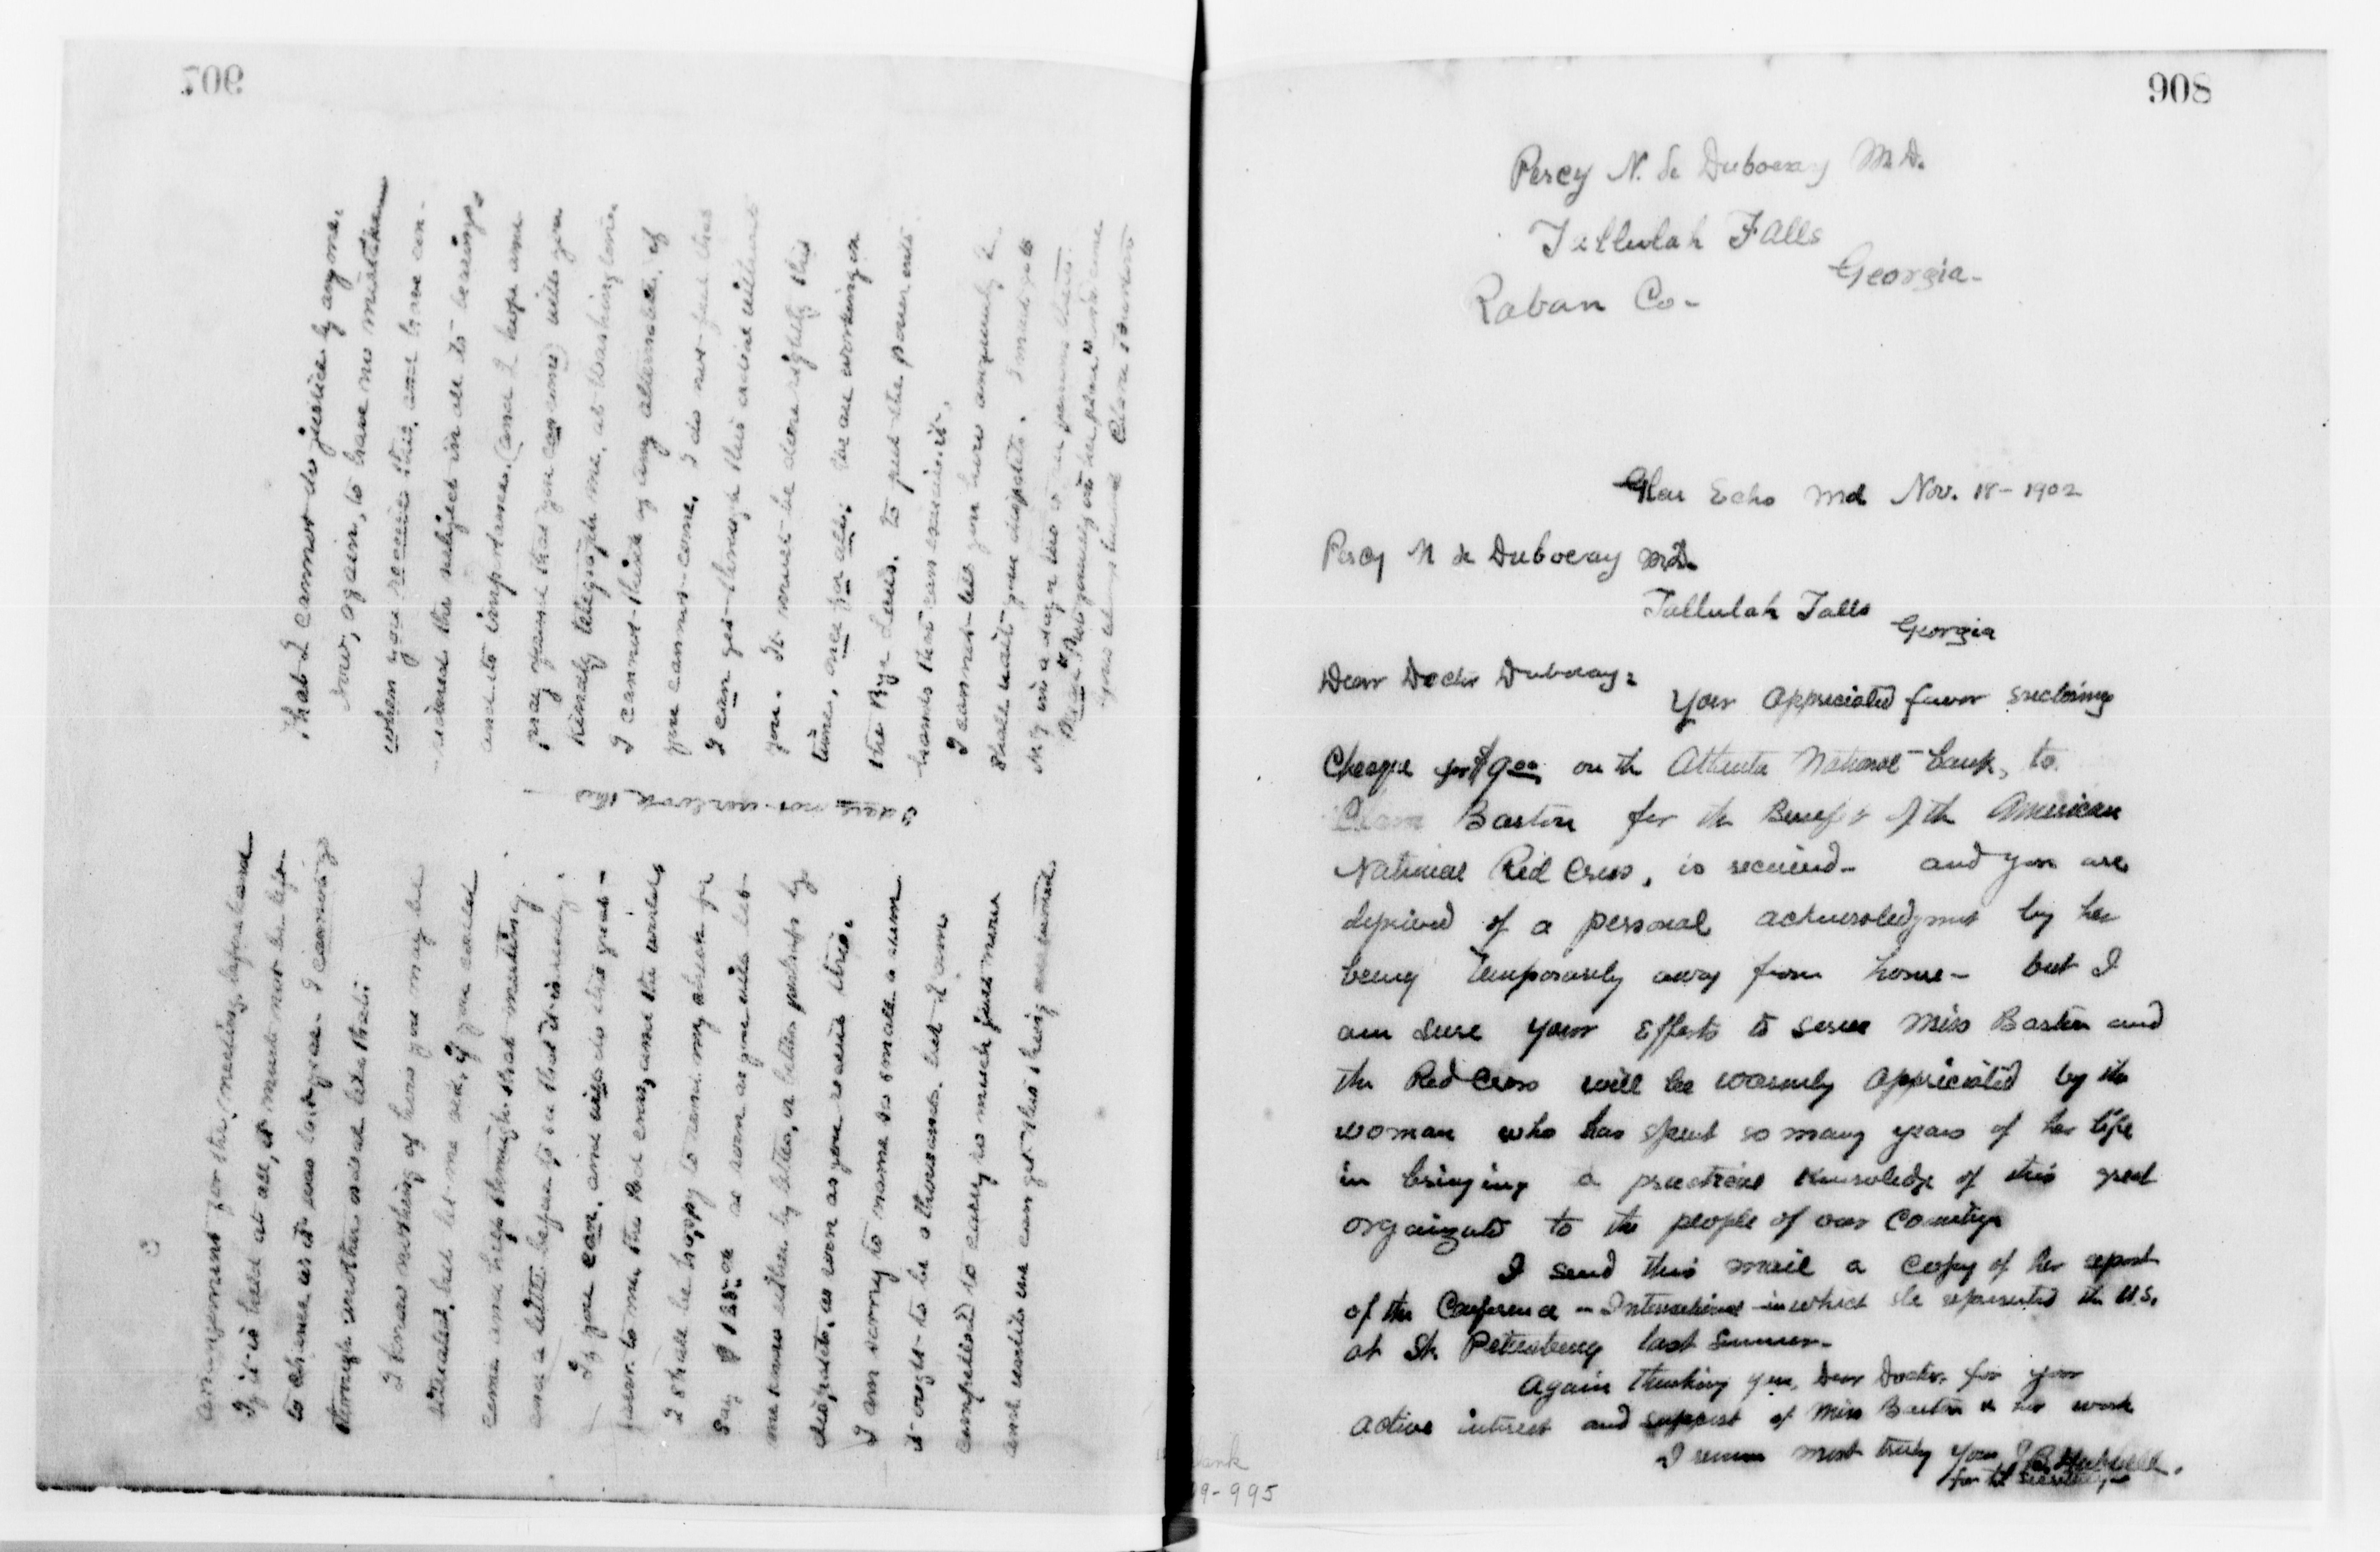 907
arrangement for the meeting beforehand
If it is held at all, it must not be left
to chance as it was last year. I cannot go
through another ordeal like that.
I know nothing of how you may be
situated, but let me ask, if you could
come and help through that meeting,
and a little before, to see that it is ready.
If you can, and will do this great
favor to me, the Red Cross, and the world
I shall be happy to send my check for
say $125.00 as soon as you will let
me know either by letter, or better perhaps by
dispatch, as soon as you receive this.
I am sorry to name so small a sum
it ought to be a thousand, but I am
compelled to carry so much just now
and until we can get this thing around.
I dare not overlook this
that I cannot do justice by anyone.
Now, again, to have no mistaken
when you receive this, and have con-
sidered the subject in all its bearings
and its importance, (and I hope and
pray that you can come) will you
kindly telegraph me, at Washington
I cannot think of any alternate, if
you cannot come. I do not feel that
I can get through this ordeal without
you. It must be done rightly this
time, once for all. We are working on
the Bye Laws. to put the power into
hands that can exercise it.
I cannot tell you how anxiously I
shall wait your dispatch.
yours always
Clara Barton
908
Percy N. de Duboway M.D.
Tallulah Falls
Georgia-
Raban Co-
Glen Echo Md Nov. 18- 1902
Percy N de Duboway M.D.
Tallulah Falls
Georgia
Dear Doctor Duboway:
Your appreciated favor enclosing
Cheque for $9 00 on the Atlanta National bank, to
Clara Barton for the Benefit of the American
National Red Cross, is received- and you are
deprived of a personal acknowledgment by her
being temporarily away from home- but I
am sure your efforts to serve Miss Barton and
the Red Cross will be warmly appreciated by the
woman who has spent so many years of her life
in bringing a practical knowledge of this great
organizatn to the people of our Country
I send this mail a copy of her report
of the Conference - International - in which she represented the U.S.
at St. Petersburg last Summer-
Again thanking you, Dear Doctor, for your
active interest and support of Miss Barton & her work
I remain most truly yours J B Hubbell.
for the secretary
9-995